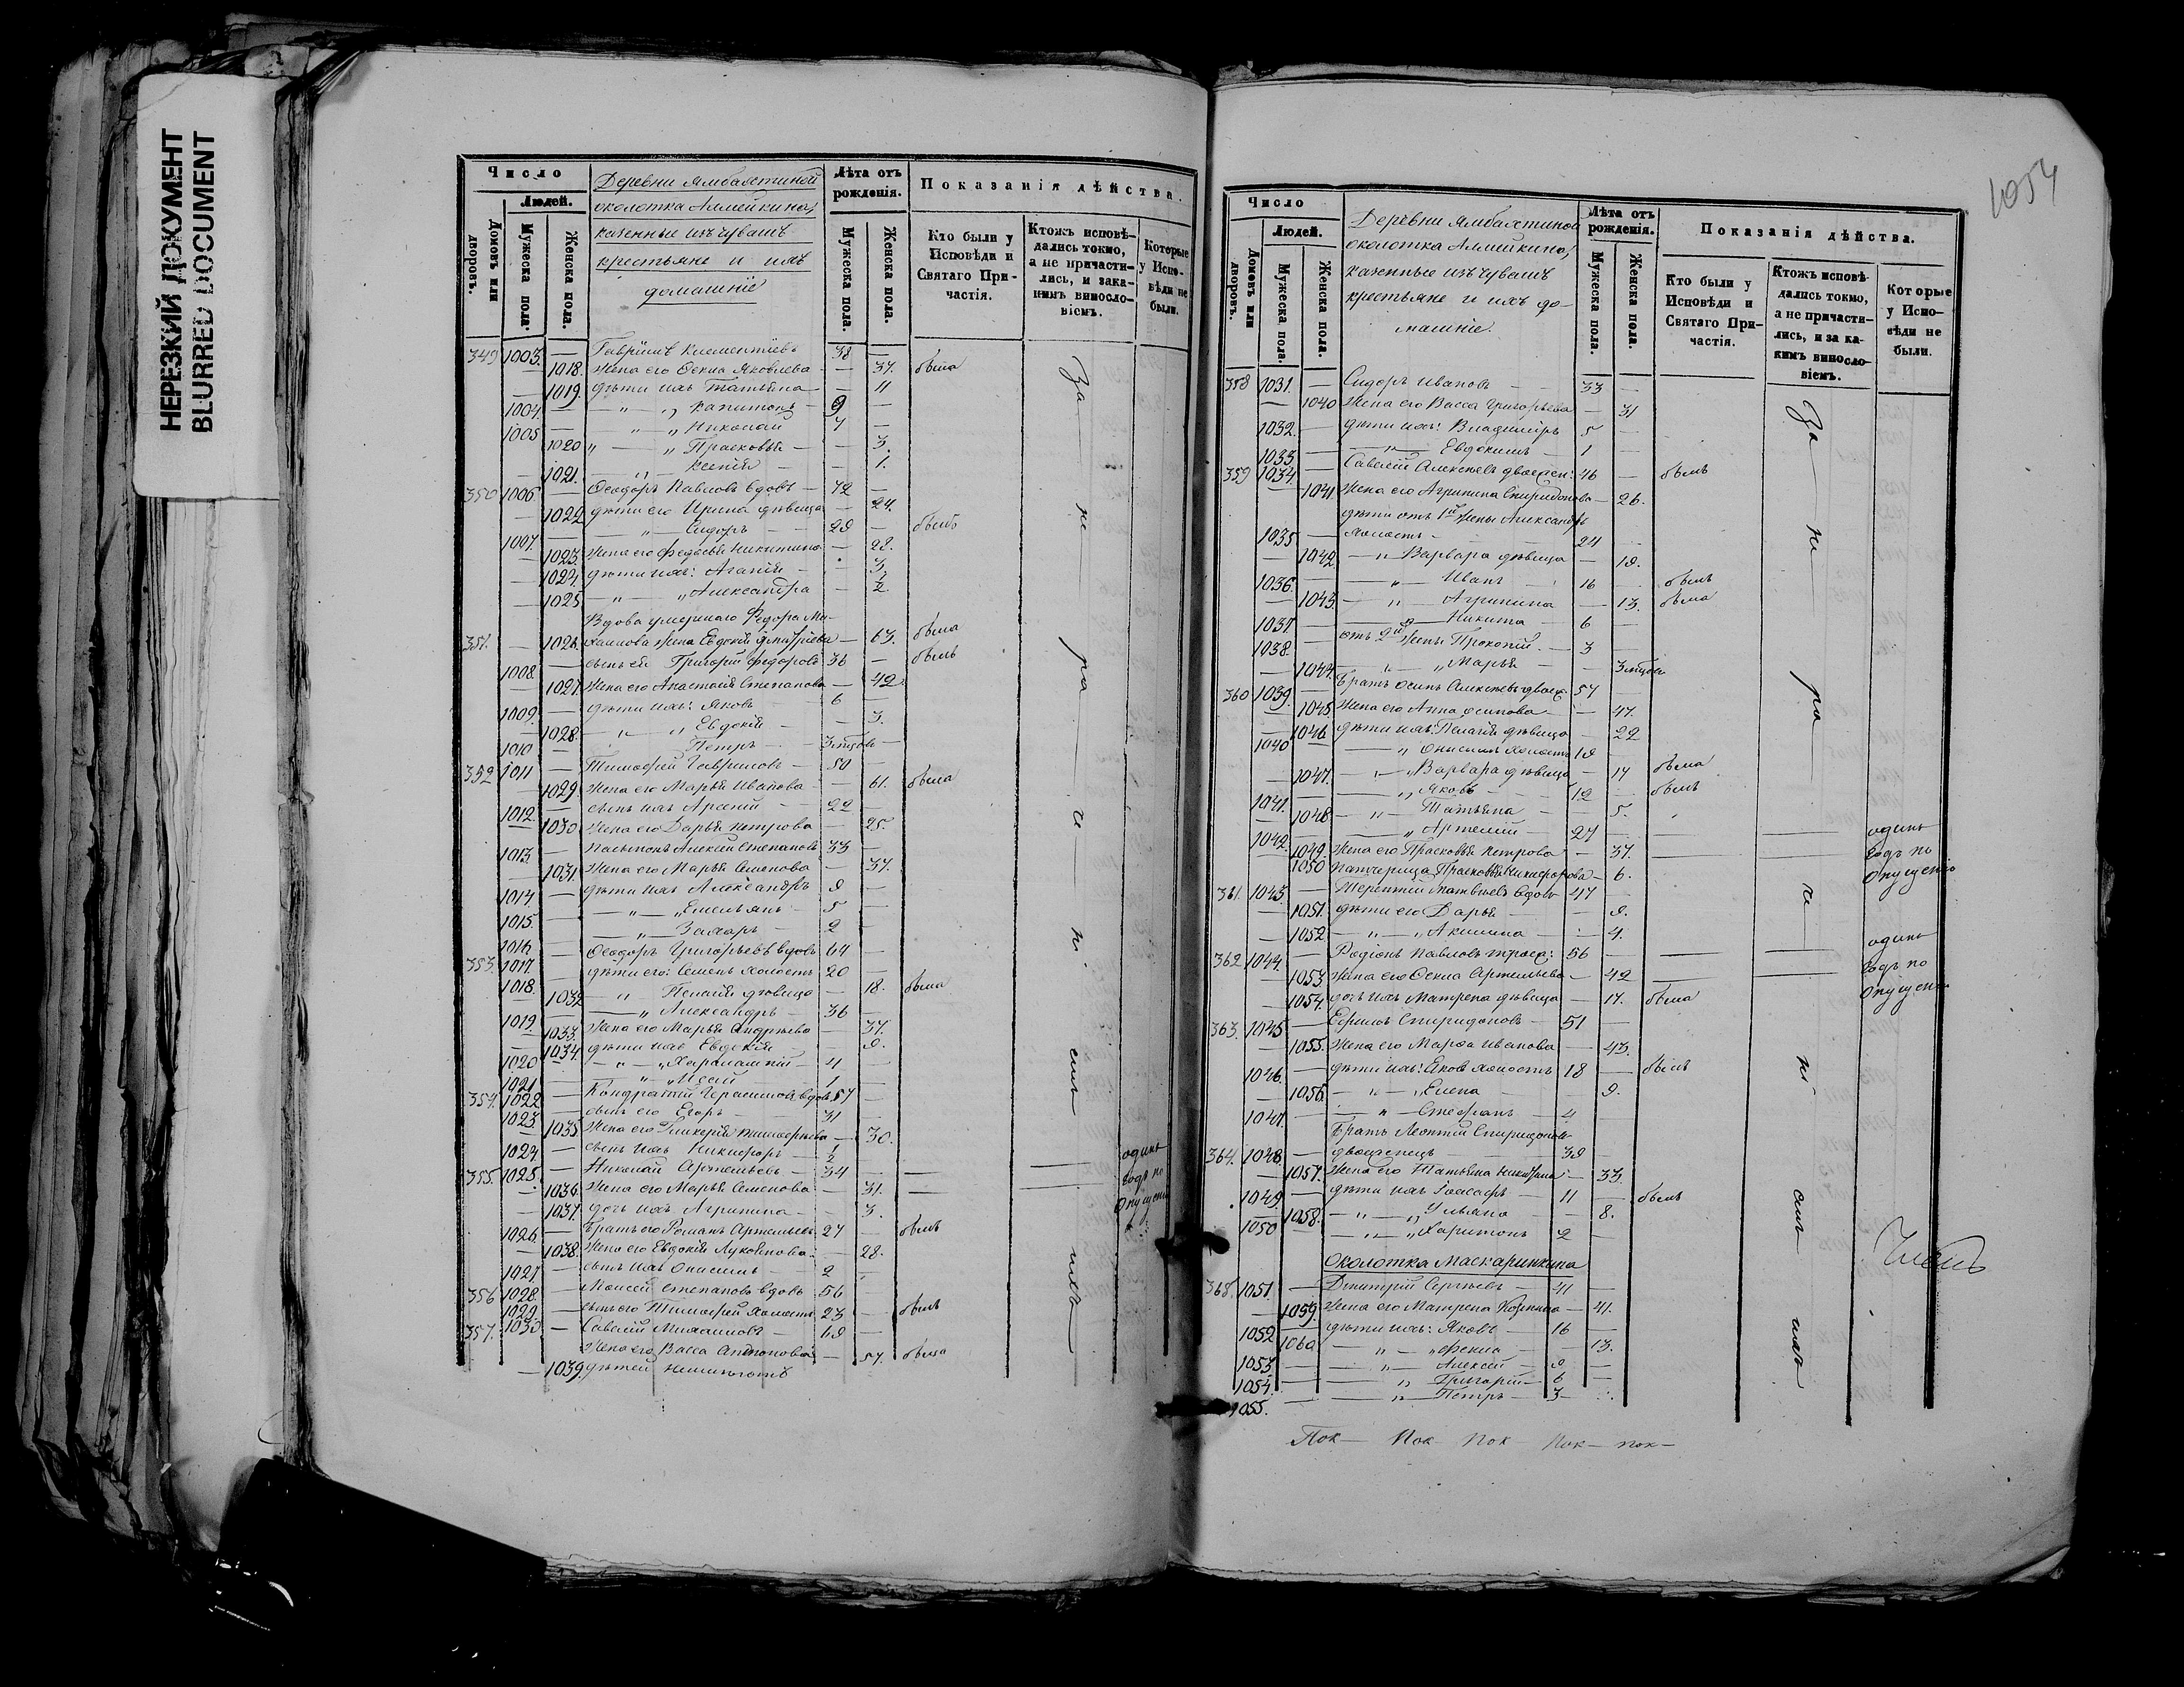 НЕРЕЗКИЙ ДОКУМЕНТ
BLURRED DOCUMENT
Число
Людей.
Домовъ или дворовъ.
Мужеска пола.
Женска пола.
Деревни Ямбахтиной
околотка
казенные изъ чувашъ
крестьяне и ихъ
домашніе
Лѣта отъ рожденія.
Мужеска пола.
Женска пола.
Показанія дѣйства.
Кто были у Исповѣди и Святаго Причастія.
Ктожъ исповѣдались токмо, а не причастились, и закакимъ винословіемъ.
Которые у Исповѣди не были.
349 1003. — Гавріилъ Климентіевъ 38 —
— 1018. жена его Ѳекла Яковлева — 37. была
— 1019. дѣти ихъ Татьяна — 11
1004. — " — " Капитонъ 9 —
1005 — " " Николай 7 —
1020 " — " Прасковья — 3.
— 1021. — " — Ксенія — 1.
350 1006 — Ѳеодоръ Павловъ вдовъ — 72 —
— 1022 дѣти его Ирина дѣвица — 24.
1007. — " — Сидоръ 29 — былъ
— 1023. жена его Федосья Никитина — 28.
— 1024. дѣти ихъ: Агапія — 3.
— 1025 — " — " Александра — 1/2
Вдова умершаго Федора Ми-
351. — 1026. хаилова жена Евдокія Дмитріева — 63. была
1008. — сынъ ея Григорій Федоровъ 36 — былъ
— 1027. жена его Анастасія Степанова — 42.
1009. — дѣти ихъ: Яковъ 6 —
— 1028. — " — " Евдокія — 3.
1010 — Петръ — 3 мѣсцовъ —
352 1011 — Тимофей Гавриловъ — 50 —
— 1029 жена его Марья Иванова — 61. была
1012. — сынъ ихъ Арсеній 22 —
— 1030 жена его Дарья Петрова — 25.
1013 — Алексей Степановъ 33 —
— 1031. жена его Марья Семенова — 37.
1014. — дѣти ихъ Александръ 9 —
1015. — — " — " Емельянъ 5 —
1016. — — " — Захаръ 2 —
353. 1017. — Ѳеодоръ Григорьевъ вдовъ 64 —
1018. — дѣти его: Семенъ холостъ 20 —
— 1032 — " — Пелагія дѣвица — 18. была
1019. — — " Александръ — 36 —
— 1033. жена его Марья Андреева — 37.
— 1034. дѣти ихъ Евдокія — 9.
1020 — " — " Харалампій — 4 —
1021 — — " — " 1 —
354. 1022 — Кондратій Герасимовъ вдовъ 57 —
1023 — сынъ его Егоръ — 31 —
— 1035 жена его Гликерія Тимофеева — 30.
1024 — сынъ ихъ Никифоръ — 1/2
355. 1025. — Николай Артемьевъ — 34 — один
— 1036. жена его Марья Семенова — 31. — годъ по
— 1037. дочь ихъ Агрипина — 3. Опущен
1026. — Братъ его Романъ Артемьевъ 27 — былъ
— 1038. жена его Евдокія — 28.
1027. — сынъ ихъ Онисимъ — 2
356 1028. — Моисей Степановъ вдовъ 56
1029. — сынъ его Тимофей холостъ 23 — былъ
357. 1030 — Савелій Михаиловъ — 69 —
Жена его Васса — 57. была
— 1039. дѣтей неимѣютъ
За не ра че ні емъ ихъ
1054
Число
Людей.
Домовъ или дворовъ.
Мужеска пола.
Женска пола.
Деревни Ямбахтиной
околотка
казенные изъ чувашъ
крестьяне и ихъ до-
машніе
Лѣта отъ рожденія.
Мужеска пола.
Женска пола.
Показанія дѣйства.
Кто были у Исповѣди и Святаго Причастія.
Ктожъ исповѣдались токмо, а не причастились, и за какимъ винословіемъ.
Которые у Исповѣди не были.
358 1031. — Сидоръ Ивановъ 33 —
— 1040 жена его Васса Григорьева — 31
1032. — дѣти ихъ: Владиміръ 5 —
1033 — " Евдокимъ — 1 —
359 1034 — Савелій Алексеевъ двоежен: 46 — былъ
— 1041. жена его Агрипина Спиридонова — 26.
дѣти отъ 1й жены Александръ
1035 — холостъ — 24 —
— 1042 — " — Варвара дѣвица — 19.
1036. — — " — Иванъ 16 — былъ
— 1043. — " — Агрипина — 13. была
1037. — Никита — 6 —
1038. — отъ 2й жены Прокопій. — 3 —
— 1044. — " — " Марья — 3 мѣсцовъ
360 1039. — Братъ Осипъ Алексеевъ 57 —
— 1045. жена его Анна Осипова — 47.
— 1046. дѣти ихъ: Пелагія дѣвица — 22
1040 — " Онисимъ холостъ 19
— 1047. — " — " Варвара дѣвица — 17 была
1041. — — " Яковъ — 12 — былъ
1048. — " — Татьяна — 5.
1042. — — " Артемій — 27 — один
— 1049. жена его Прасковья Петрова — 37. — годъ по
— 1050 падчерица Прасковья Никифорова — 6. Опущенію
361. 1043. — Терентій Матвѣевъ вдовъ 47 —
— 1051. дѣти его Дарья — 9.
— 1052 — " — " Акилина — 4.
362. 1044. — Родіонъ Павловъ 56 — один
— 1053 жена его Ѳекла Артемьева — 42 годъ по
— 1054. дочь ихъ Матрена дѣвица — 17. была Опущен
363. 1045 — Ефимъ Спиридоновъ — 51 —
— 1055. жена его Марѳа Иванова — 43.
1046. — дѣти ихъ: Яковъ холостъ 18 — былъ
— 1056. — " — " Елена — 9.
1047. — " — Стефанъ — 4
Братъ Леонтій Спиридоновъ
364. 1048. — двоеженецъ 39 —
— 1057. жена его Татьяна — 33.
1049. — дѣти ихъ Іоасафъ — 11 — былъ
— 1058. — " — " Ульяна — 8.
1050 — — " — " Харитонъ 2 —
Околотка Маскаринкина
368. 1051. — Дмитрій Сергѣевъ 41 —
— 1059. жена его Матрена — 41.
1052 — дѣти ихъ: Яковъ — 16 —
1060 — " — " Фекла — 13.
1053. — — " Алексей — 9 —
1054. — — " Григорій — 6 —
1055. — — " — Петръ — 3
За не ра че ні емъ ихъ
Пок — Пок — Пок — Пок — пок —